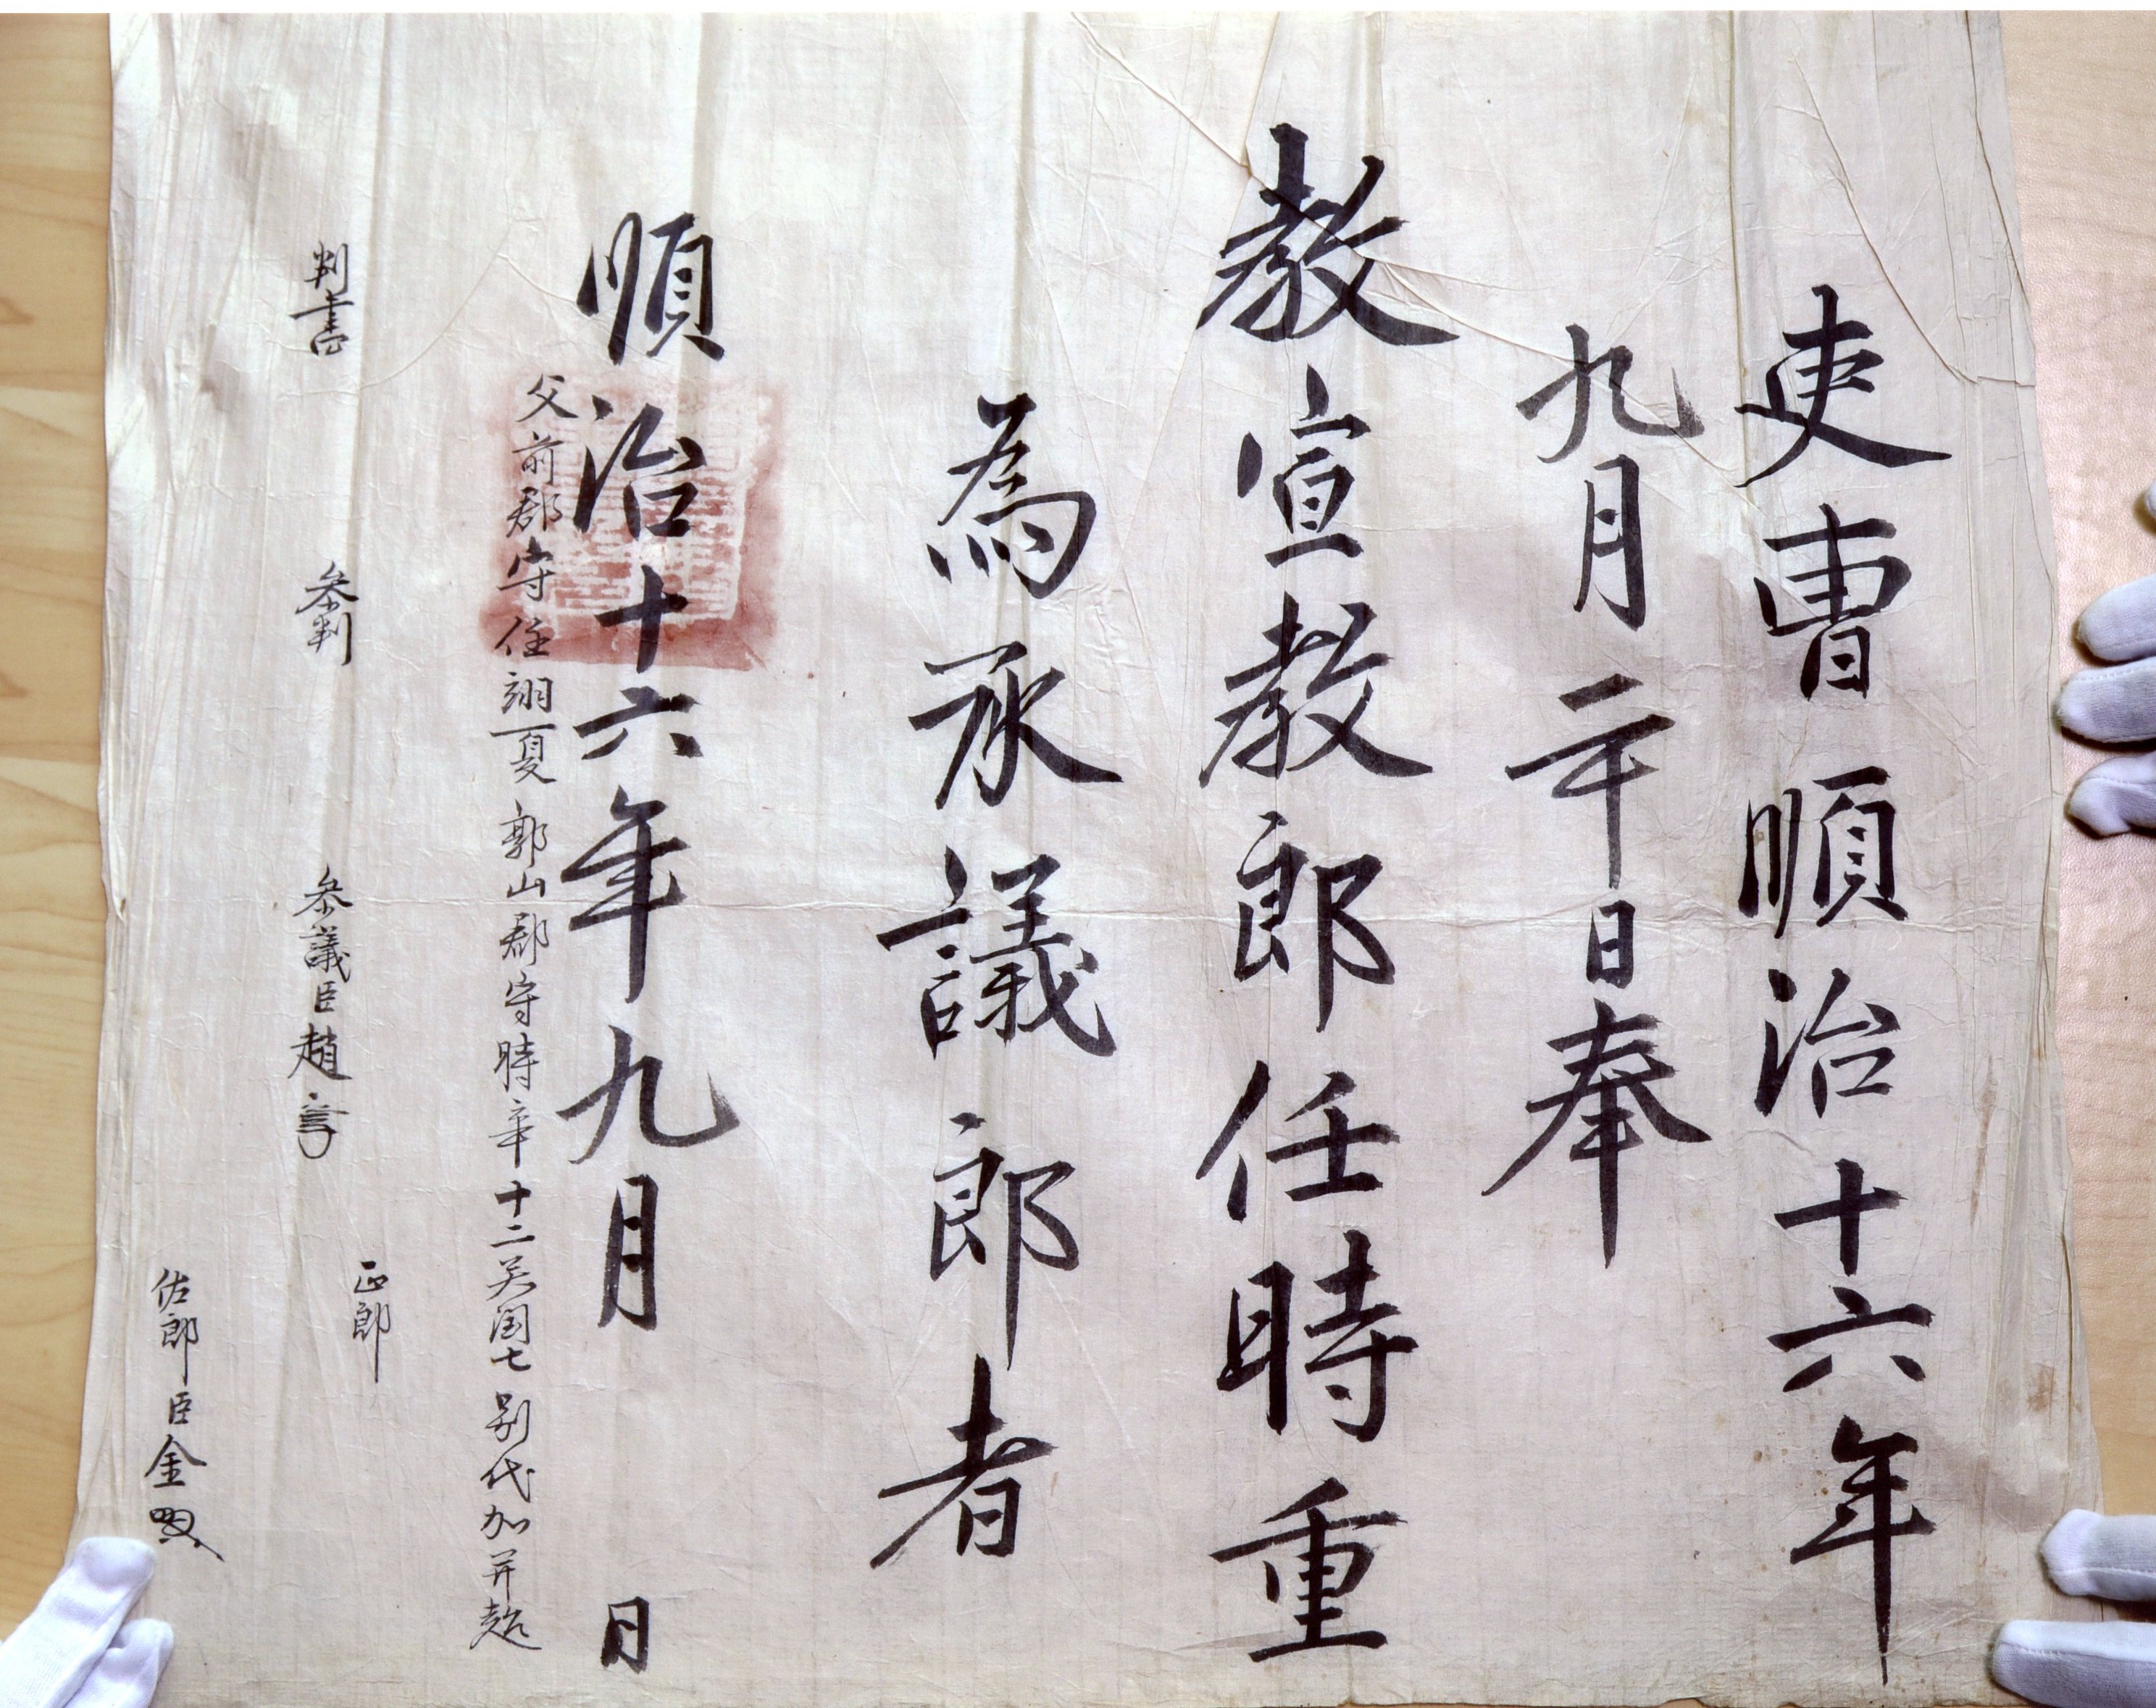 吏曹順治十六年
九月二十日奉
教宣教郎任時重
為承議郎者
順治十六年九月 日
父前郡守任翊夏郭山郡守時辛十二关闰七別代加并超
判書
參判
參議臣趙
正郎
佐郎臣金